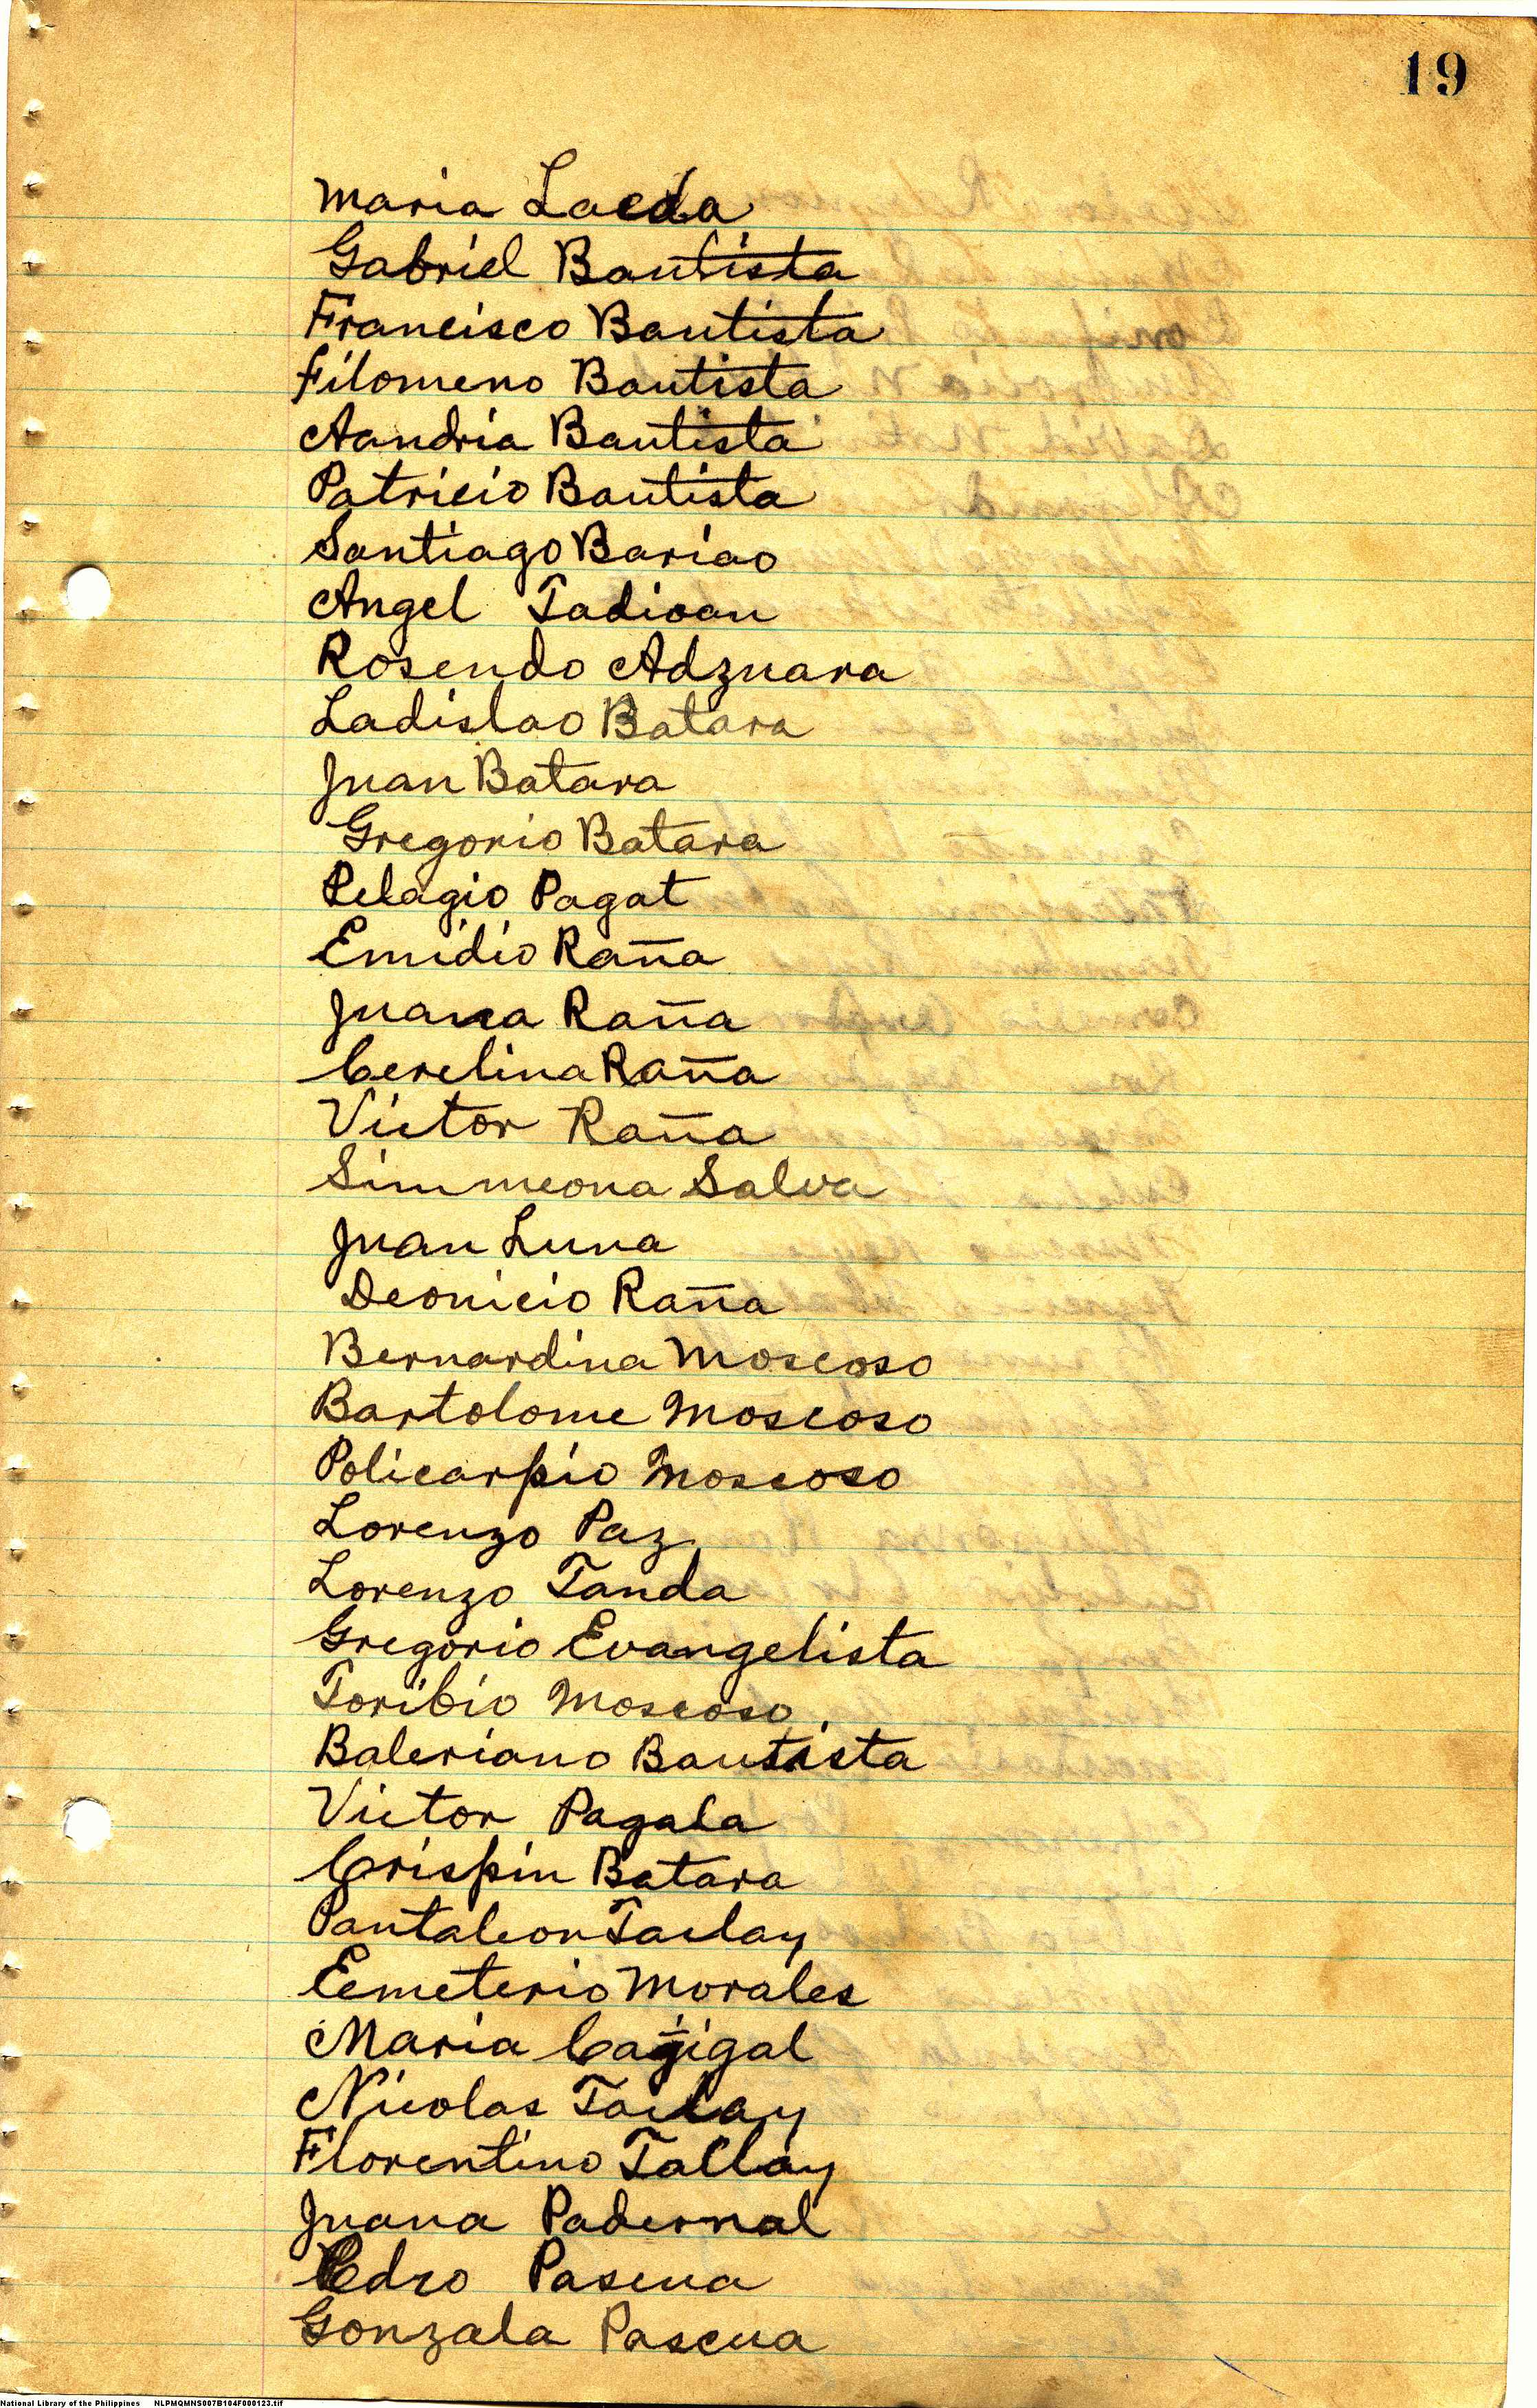 19
Maria Laeda
Gabriel Bautista
Francisco Bautista
Filomeno Bautista
Aandria Bautista
Patricio Bautista
Santiago Bariao
Angel Tadioan
Rosendo Adzuara
Ladislao Batara
Juan Batara
Gregorio Batara
Pelagio Pagat
Emidio Raña
Juana Raña
Cerelina Raña
Victor Raña
Simmeona Salva
Juan Luna
Deonicio Raña
Bernardina Moscoso
Bartolome Moscoso
Policarpio Moscoso
Lorenzo Paz
Lorenzo Tanda
Gregorio Evangelista
Toribio Moscoso
Baleriano Bautista
Victor Pagala
Crispin Batara
Pantaleon Taclay
Eemeterio Morales
Maria Cagigal
Nicolas Taclay
Florentino Tallay
Juana Padernal
Pedro Pascua
Gonzala Pascua
National Library of the Philippines NLPMQMNS007B104F000123.tif